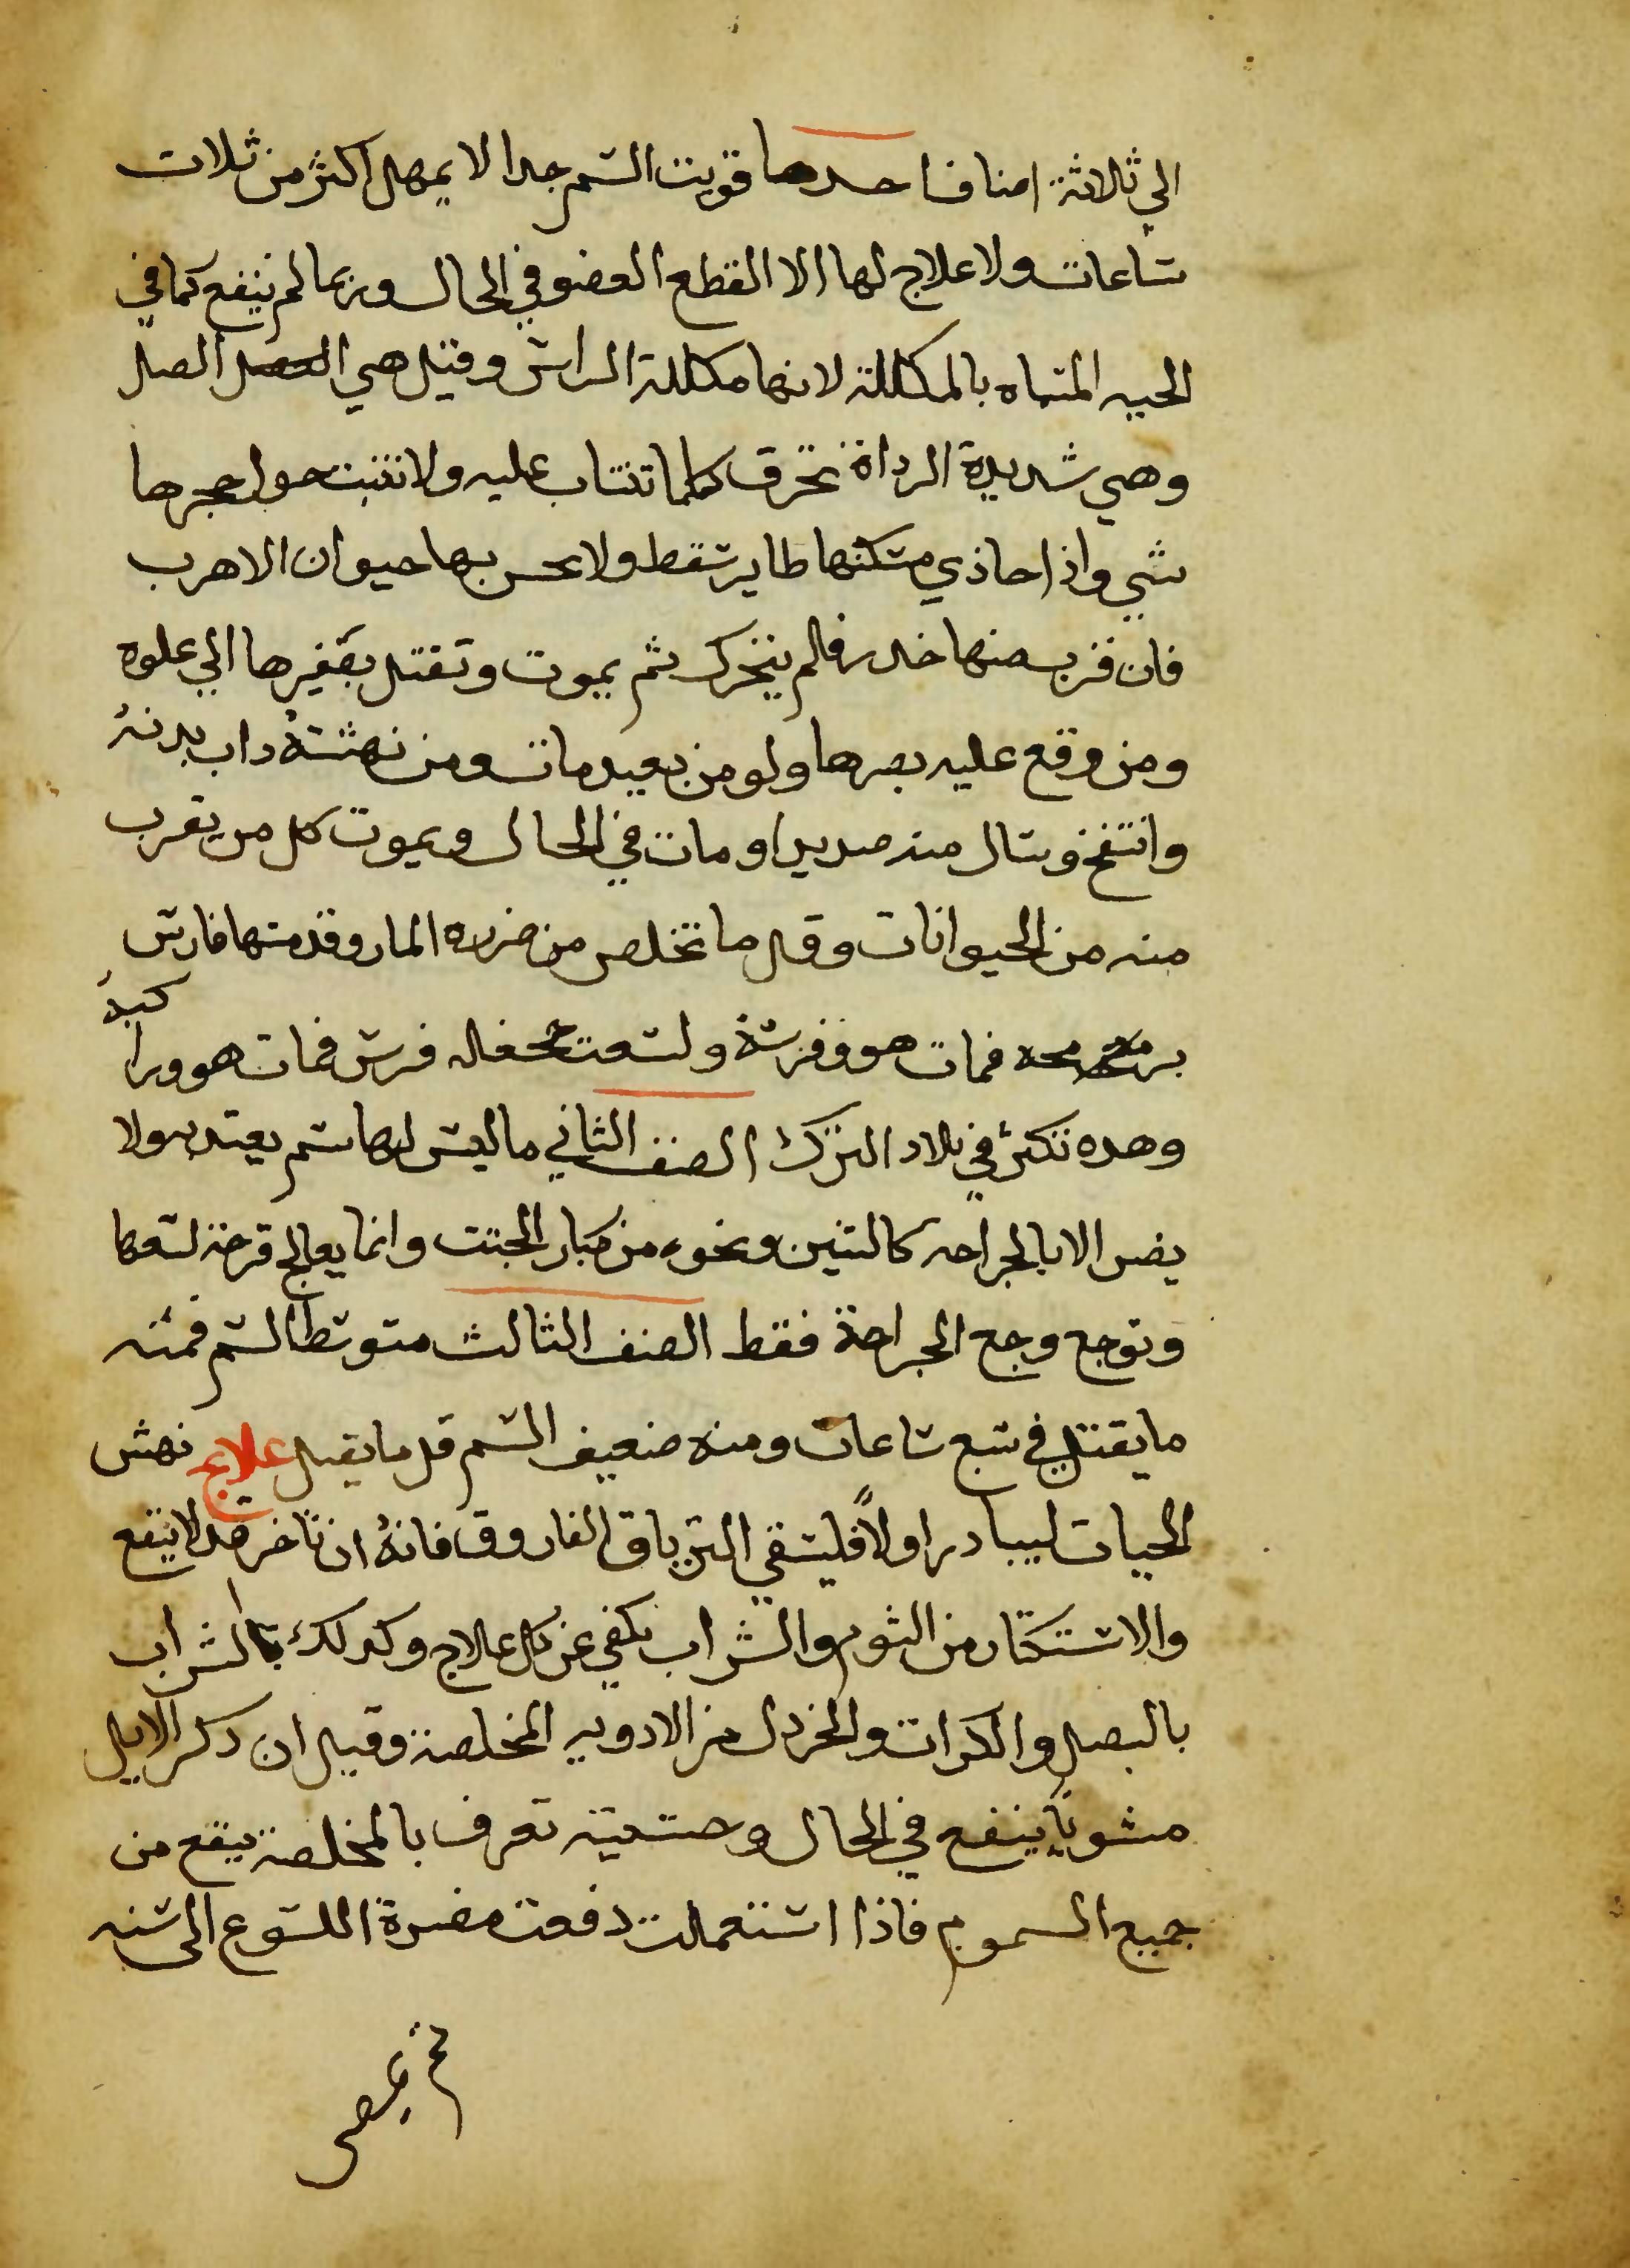 الي ثلاثة اصناف احدها قويت السم جدا لا يمهل اكثر من ثلات
ساعات ولا علاج لها الا القطع العضو في الحال وربما لم ينفع كما في
الحيه المسماه بالمكللة لانها مكللة الراس وقيل هي الصل
وهي شديدة الرداة تحرق كلما تنساب عليه ولا تنبت حول حجرها
شي واذا حاذي مسكنها طاير سقط ولا يحس بها حيوان الا هرب
فان قرب منها خدر فلم يتحرك ثم يموت وتقتل بصفيرها الي علوه
ومن وقع عليه بصرها ولو من بعيد مات ومن نهشته داب بدنه
وانتفخ وسال منه صديدا ومات في الحال ويموت كل من يقرب
منه من الحيوانات وقل ما تخلص من ضرره المار وقد مسها فارس
برمحه فمات هو وفرسه ولسعت جحفله فرس فمات هو وراكبه
وهده تكثر في بلاد الترك الصنف الثاني ما ليس لها سم يعتد به ولا
يضر الا بالجراحه كالتنين ونحوه من كبار الجثت وانما يعالج قرحة لسعها
وتوجع وجع الجراحة فقط الصنف الثالث متوسط السم فمنه
ما يقتل في سبع ساعات ومنه ضعيف السم قل ما يقتل علاج نهش
الحيات ليبادر اولاً فليسقي الترياق الفاروق فانه ان تاخر قد لا ينفع
والاستكثار من الثوم والشراب يكفي عن كل علاج وكدلك بالشراب
بالبصل والكرات والخردل من الادويه المخلصة وقيل ان دكر الايل
مشوياً ينفع في الحال وحشيشة تعرف بالمخلصة ينفع من
جميع السموم فاذا استعملت دفعت مضرة اللسوع الى سنه